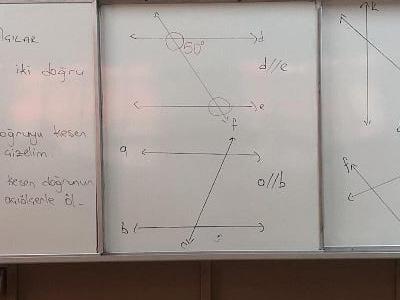 iki doğru
doğruyu kesen
çizelim.
kesen doğrunun
açıölçerle öl-
d
50°
d//e
e
f
a
a//b
b
k
f